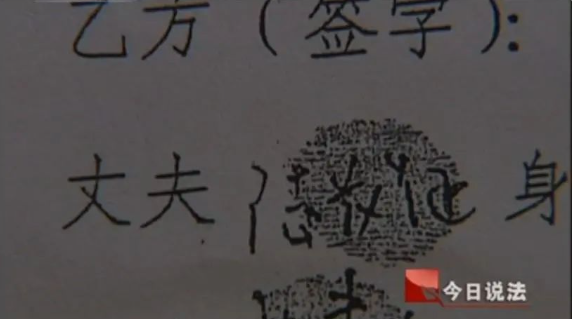 乙方（签字）：
丈夫 身
今日说法